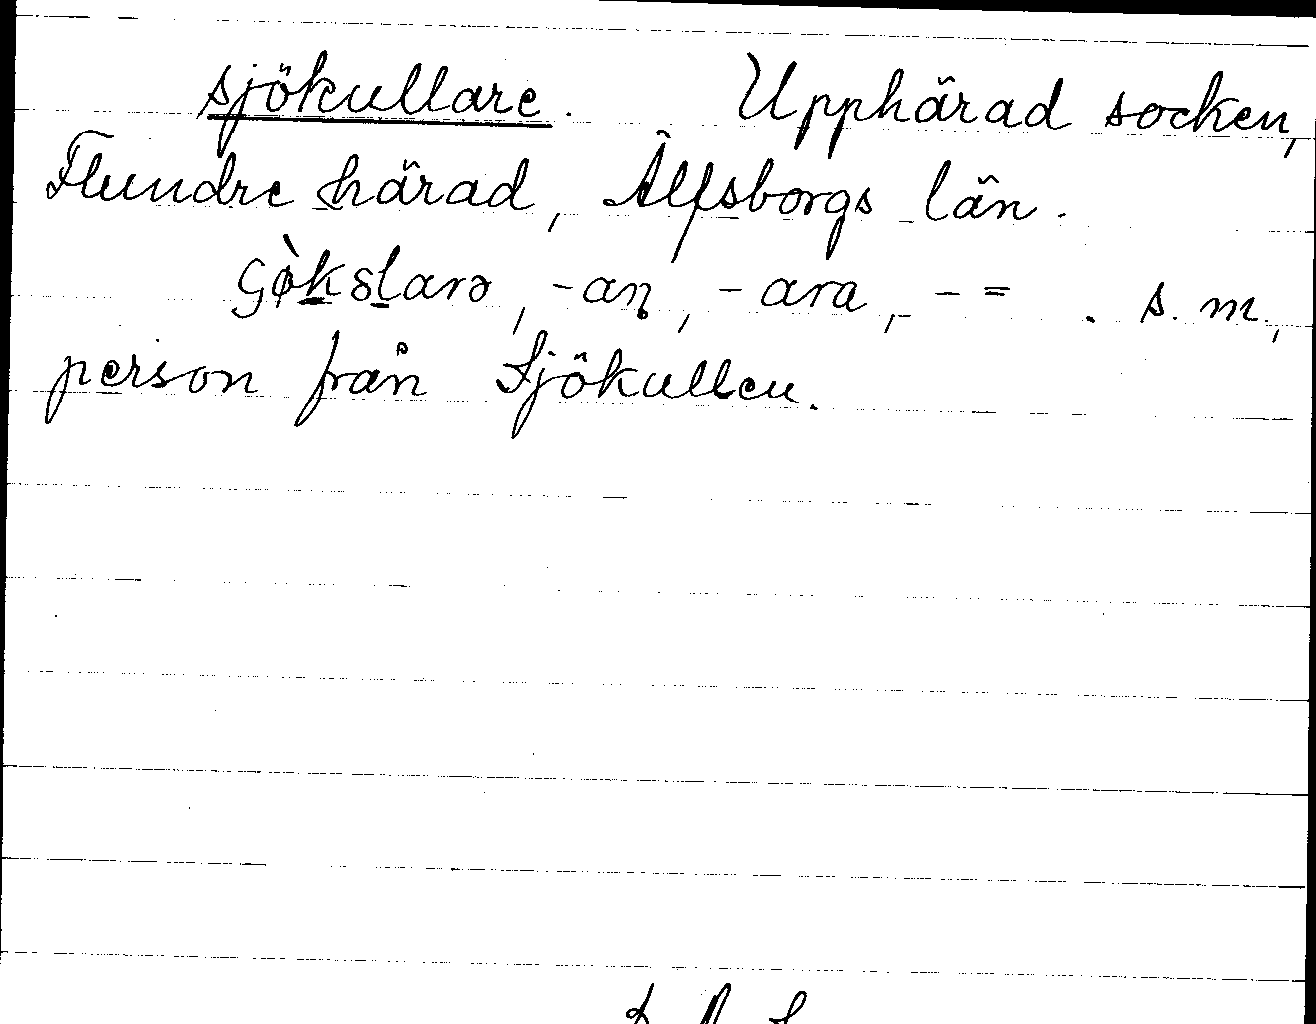 sjökullare. Upphärad socken,
Flundre härad, Älfsborgs län.
-an, -ara, - = . s. m.,
person från Sjökullen.